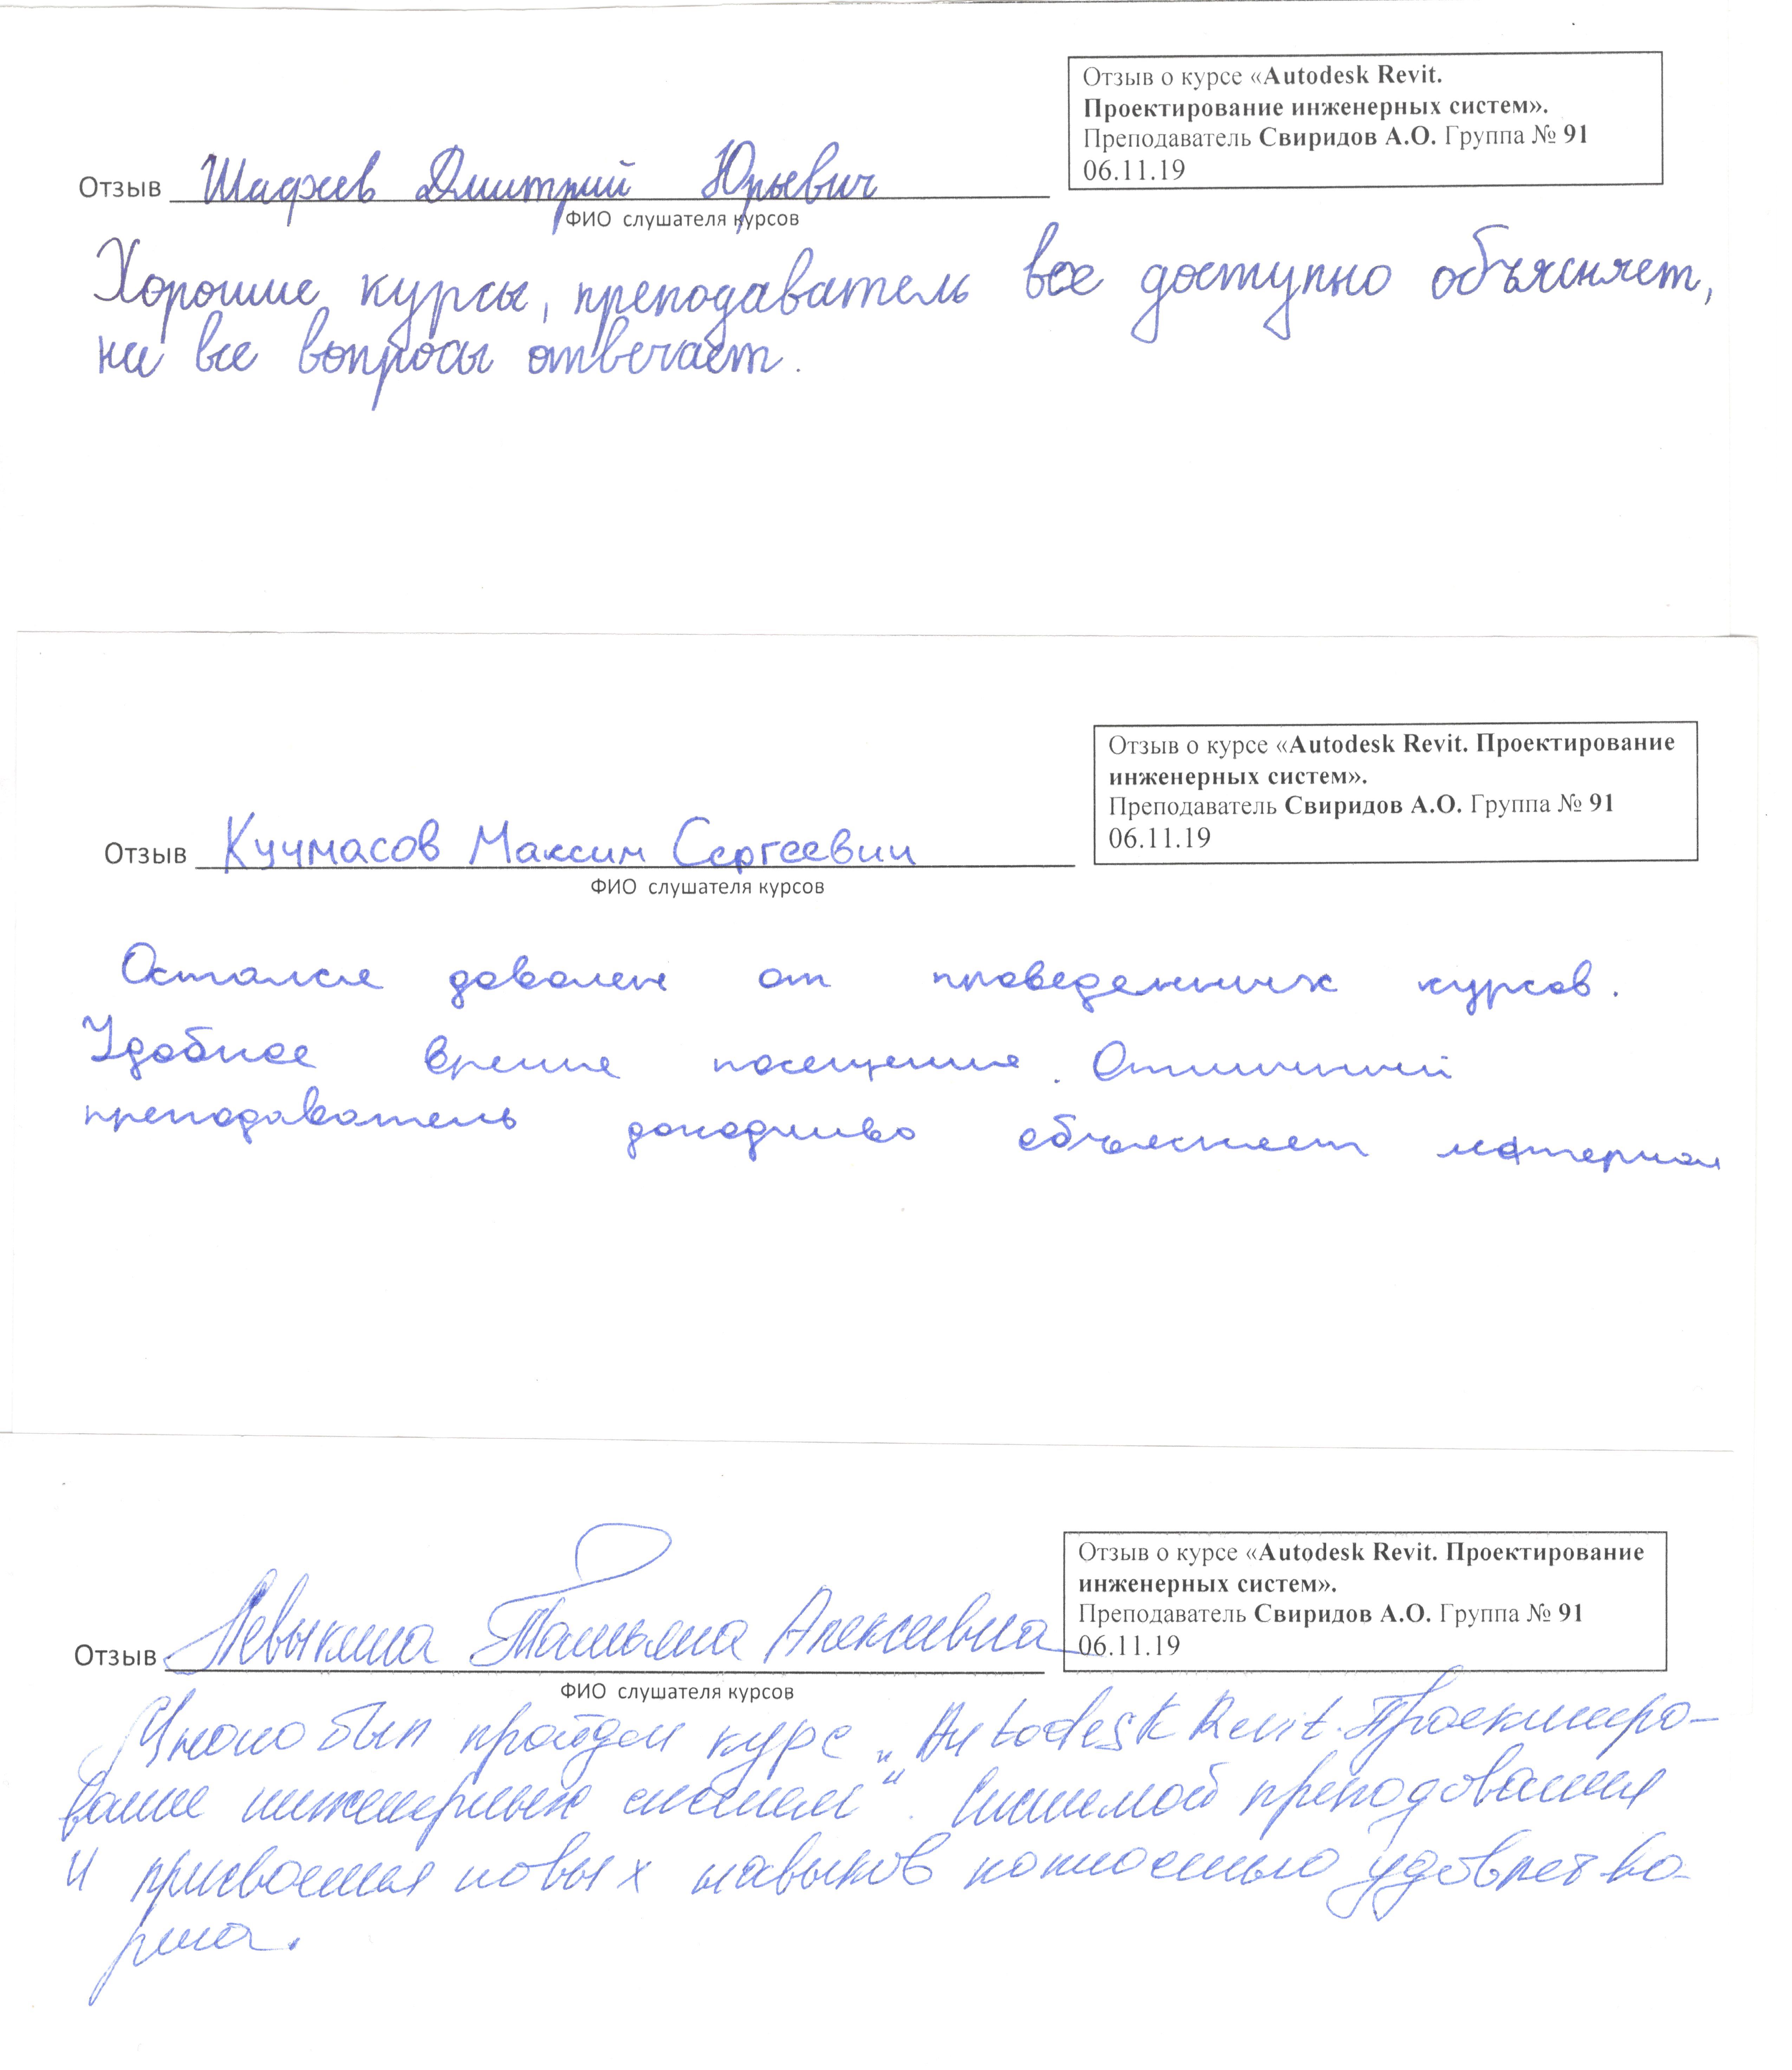 Отзыв о курсе «Autodesk Revit.
Проектирование инженерных систем».
Преподаватель Свиридов А.О. Группа № 91
06.11.19
Отзыв Дмитрий Юрьевич
ФИО слушателя курсов
Хорошие курсы, преподаватель все доступно объясняет,
на все вопросы отвечает.
Отзыв о курсе «Autodesk Revit. Проектирование
инженерных систем».
Преподаватель Свиридов А.О. Группа № 91
06.11.19
Отзыв Кучмасов Максим Сергеевич
ФИО слушателя курсов
Остался доволен от проведенных курсов.
Удобное время посещения. Отличный
преподаватель доходчиво объясняет материал
Отзыв о курсе «Autodesk Revit. Проектирование
инженерных систем».
Преподаватель Свиридов А.О. Группа № 91
06.11.19
Отзыв Левыкина Татьяна Алексеевна
ФИО слушателя курсов
Мною был пройден курс „Autodesk Revit. Проектиро-
вание инженерных систем“. Системой преподования
и присвоения новых навыков полностью удовлетво-
рена.